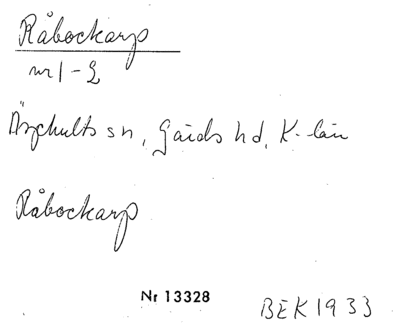 Råbockarp
nr 1-2
Äsphults sn, Gärds hd, K-län
Råbockarp
Nr 13328
BEK 1933